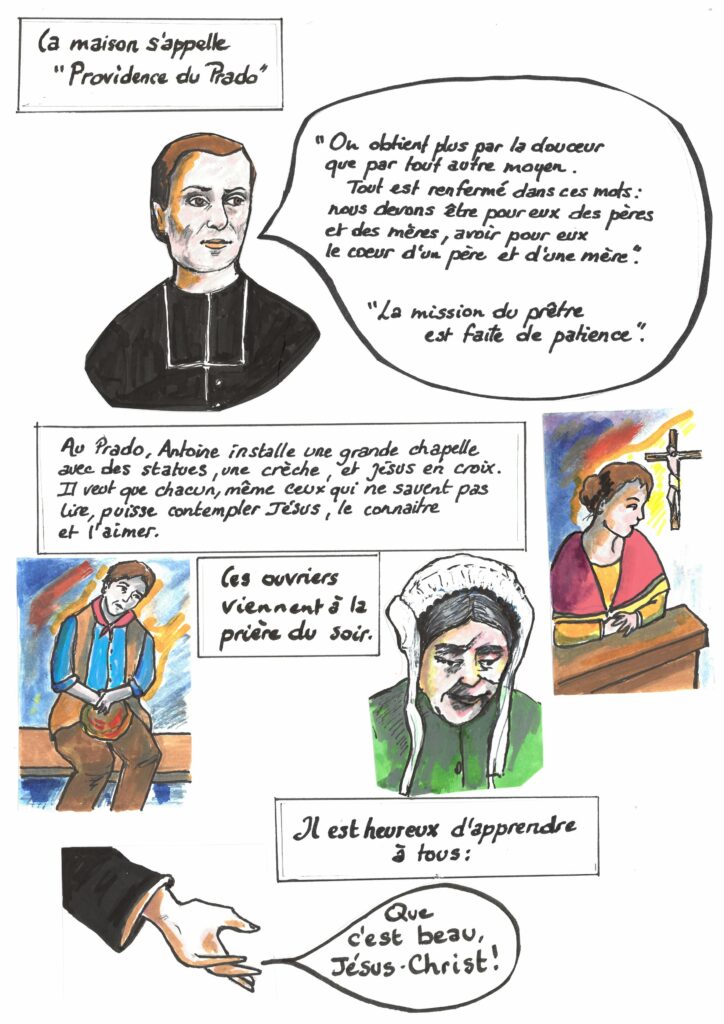 La maison s'appelle
"Providence du Prado"
"On obtient plus par la douceur
que par tout autre moyen.
Tout est renfermé dans ces mots:
nous devons être pour eux des pères
et des mères, avoir pour eux
le coeur d'un père et d'une mère".
"La mission du prêtre
est faite de patience".
Au Prado, Antoine installe une grande chapelle
avec des statues, une crèche, et Jésus en croix.
Il veut que chacun, même ceux qui ne savent pas
lire, puisse contempler Jésus, le connaitre
et l'aimer.
Les ouvriers
viennent à la
prière du soir.
Il est heureux d'apprendre
à tous:
Que
c'est beau,
Jésus-Christ!